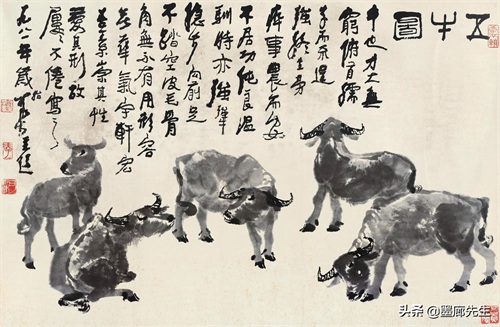 五牛圖
牛也力大無
窮俯首孺
子而不逞
強終生勞
瘁事農而安
不居功純良溫
馴時亦強犟
穩步向前足
不踏空皮毛骨
角無不有用形容
無華氣宇軒宏
吾崇其性
愛其形故
屢不倦寫之
一九八一年歲始可染並題
头条 @墨廊先生